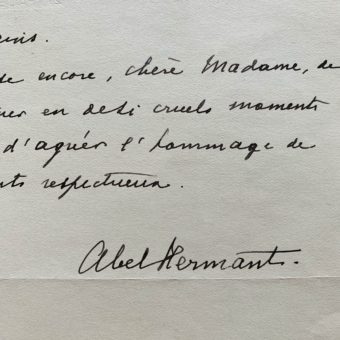 se encore, chère Madame, de
en de si cruels moments
d'agréer l'hommage de
respectueux.
Abel Hermant.